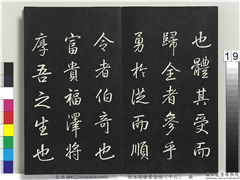 也體其受而
歸全者參乎
勇於從而順
令者伯奇也
富貴福澤將
厚吾之生也
19